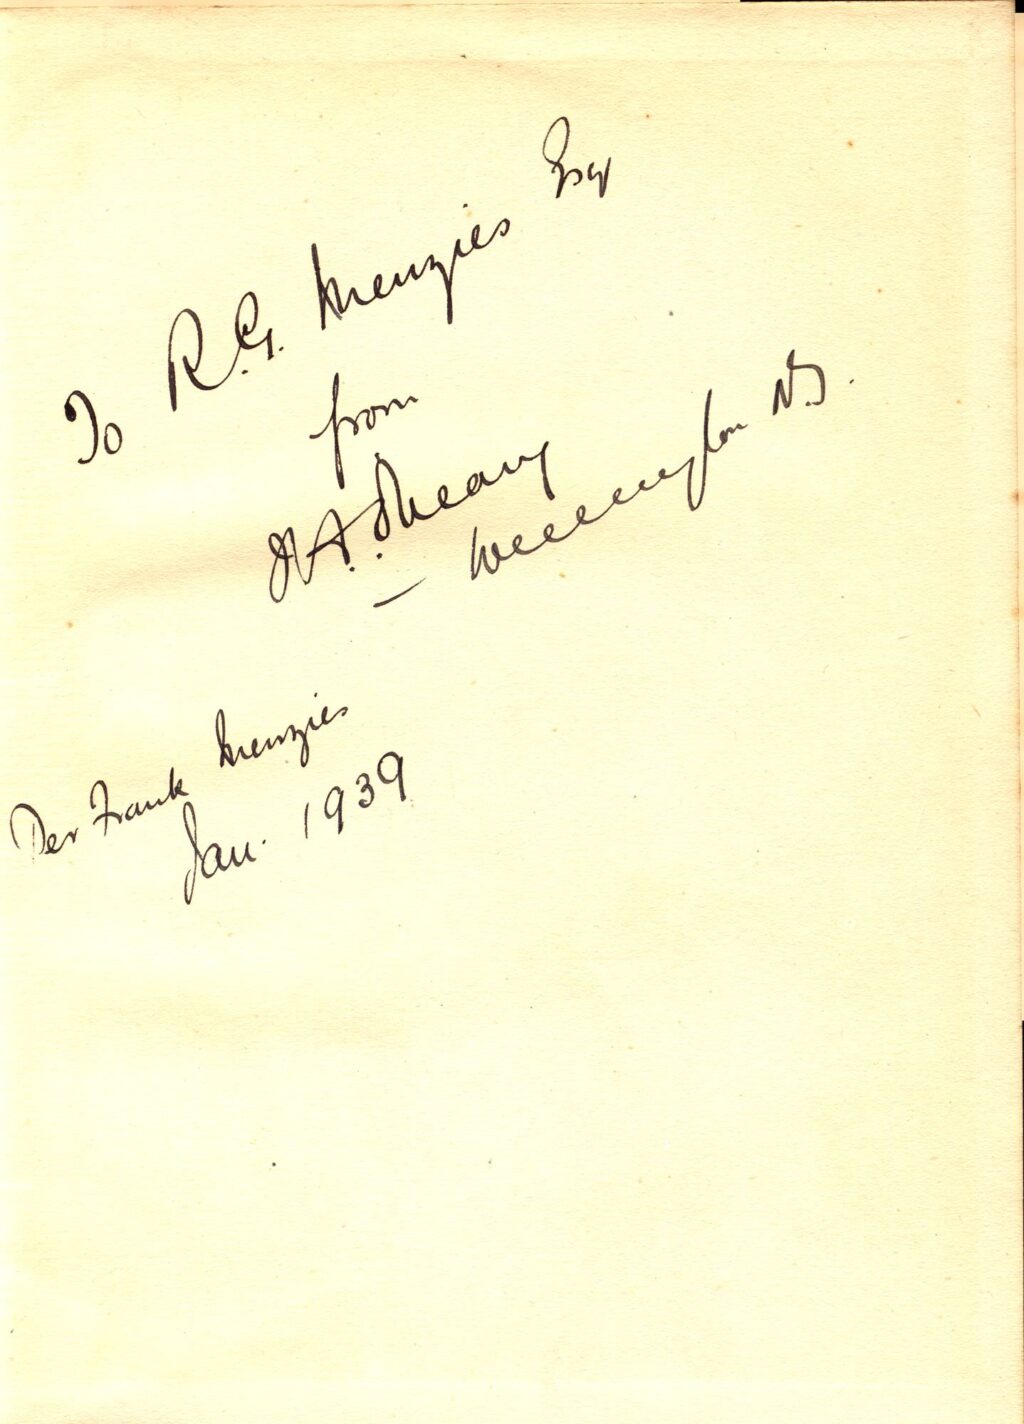 To R.G. Menzies Esq
from
— Wellington N.Z.
Per Frank Menzies
Jan. 1939